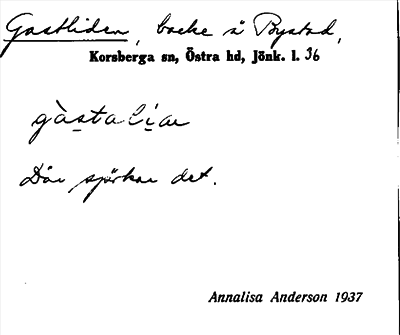 Gastliden, backe å Bystad,
Korsberga sn, Östra hd, Jönk. l. 36
gàstalịar
Där spökar det.
Annalisa Anderson 1937